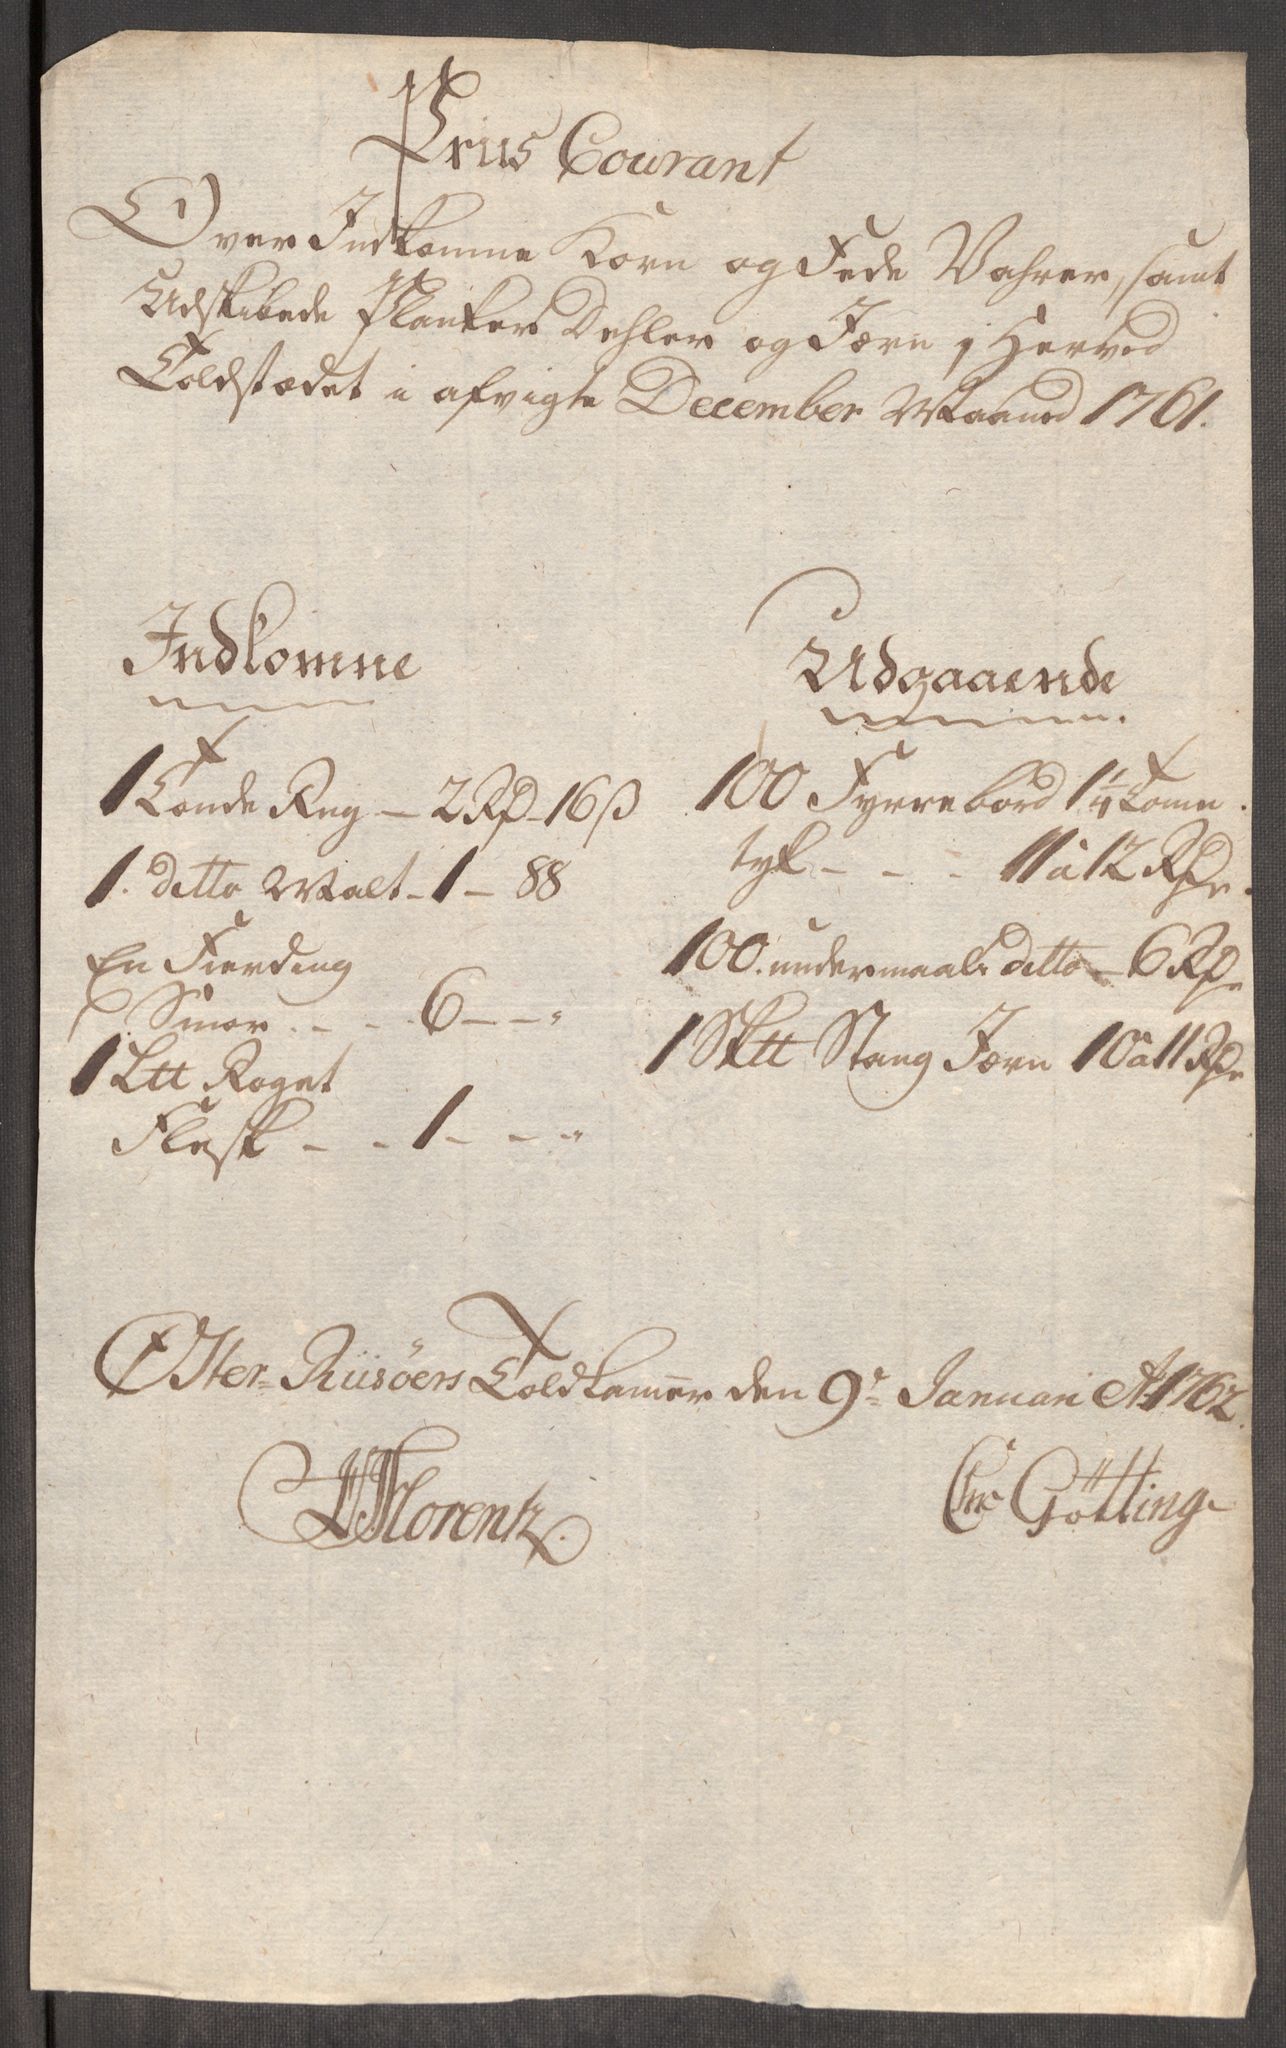 Priis Courant
Over Indkomne Korn og Fede Vahrer, samt
Udskibede Planker Dehler og Jærn, Herved
Toldstædet i afvigte December Maaned 1761.
Indkomne
1 Tønde Rug — 2 Rd - 16 ß
1. ditto Malt - 1 — 88
En Fierding
Smør . - - 6 — — "
1 L℔ Røget
Flesk - - 1 - - - "
Udgaaende
100 Fyrrebord 1 1/4 Tome
tyk - - - 11 à 12 Rdr.
100. undermaals ditto — 6 Rdr
1 Sk℔ Stang Jærn 10 à 11 Rdr
Øster-Riisöers Toldkamer den 9de Januari Ao 1762.
Florentz.
Chr Götting